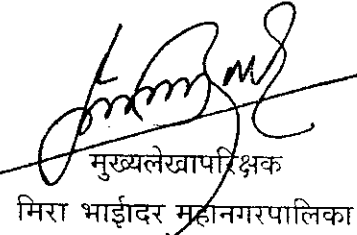 मुख्यलेखापरिक्षक
मिरा भाईंदर महानगरपालिका